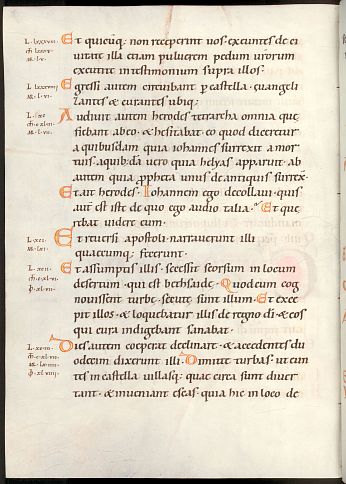 Et quicūq; non receperint uos. exeuntes de ci
uitate illa etiam puluerem pedum ur̄orum
excutite in testimonium supra illos.
Egressi autem circuibant p castella. euangeli
zantes & curantes ubiq;
Audiuit autem herodes tetrarcha omnia que
fiebant ab eo. & hesitabat eo quod diceretur
a quibusdam quia iohannes surrexit a mor
tuis. a quibdā uero quia helyas apparuit. ab
autem quia ppheta unus de antiquis surrex.
Et ait herodes. Iohannem ego decollaui. quis
aut̄ est iste de quo ego audio talia. Et que
rebat uidere eum.
Et reuersi apostoli narrauerunt illi
quaecumq; fecerunt.
Et assumptis illis. secessit seorsum in locum
desertum. qui est bethsaide. Quod cum cog
nouissent turbe. secute sunt illum. Et exce
pit illos. & loquebatur illis de regno dī. & eos
qui cura indigebant sanabat.
Dies autem coeperat declinare. & accedentes du
odecim dixerunt illi. Dimitte turbas. ut eun
tes in castella uillasq; quae circa sunt diuer
tant. & inueniant escas. quia hic in loco de